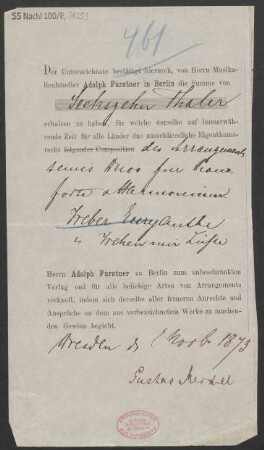 55 Nachl 100/B,
461
Der Unterzeichnete bestätigt hierdurch, von Herrn Musika-
lienhändler Adolph Furstner in Berlin die Summe von
Sechszehn Thaler
erhalten zu haben, für welche derselbe auf immerwäh-
rende Zeit für alle Länder das ausschliessliche Eigenthums-
recht folgender Composition des Arrangements
seines Duos für Piano
forte & Harmonium
Weber Euryanthe
Wehen mir Lüfte
Herrn Adolph Furstner zu Berlin zum unbeschränkten
Verlag und für alle beliebige Arten von Arrangements
verkauft, indem sich derselbe aller ferneren Anrechte und
Ansprüche an dem aus verbezeichnetem Werke zu machen-
den Gewinn begiebt.
Dresden d. Novb 1873
Gustav Merkel